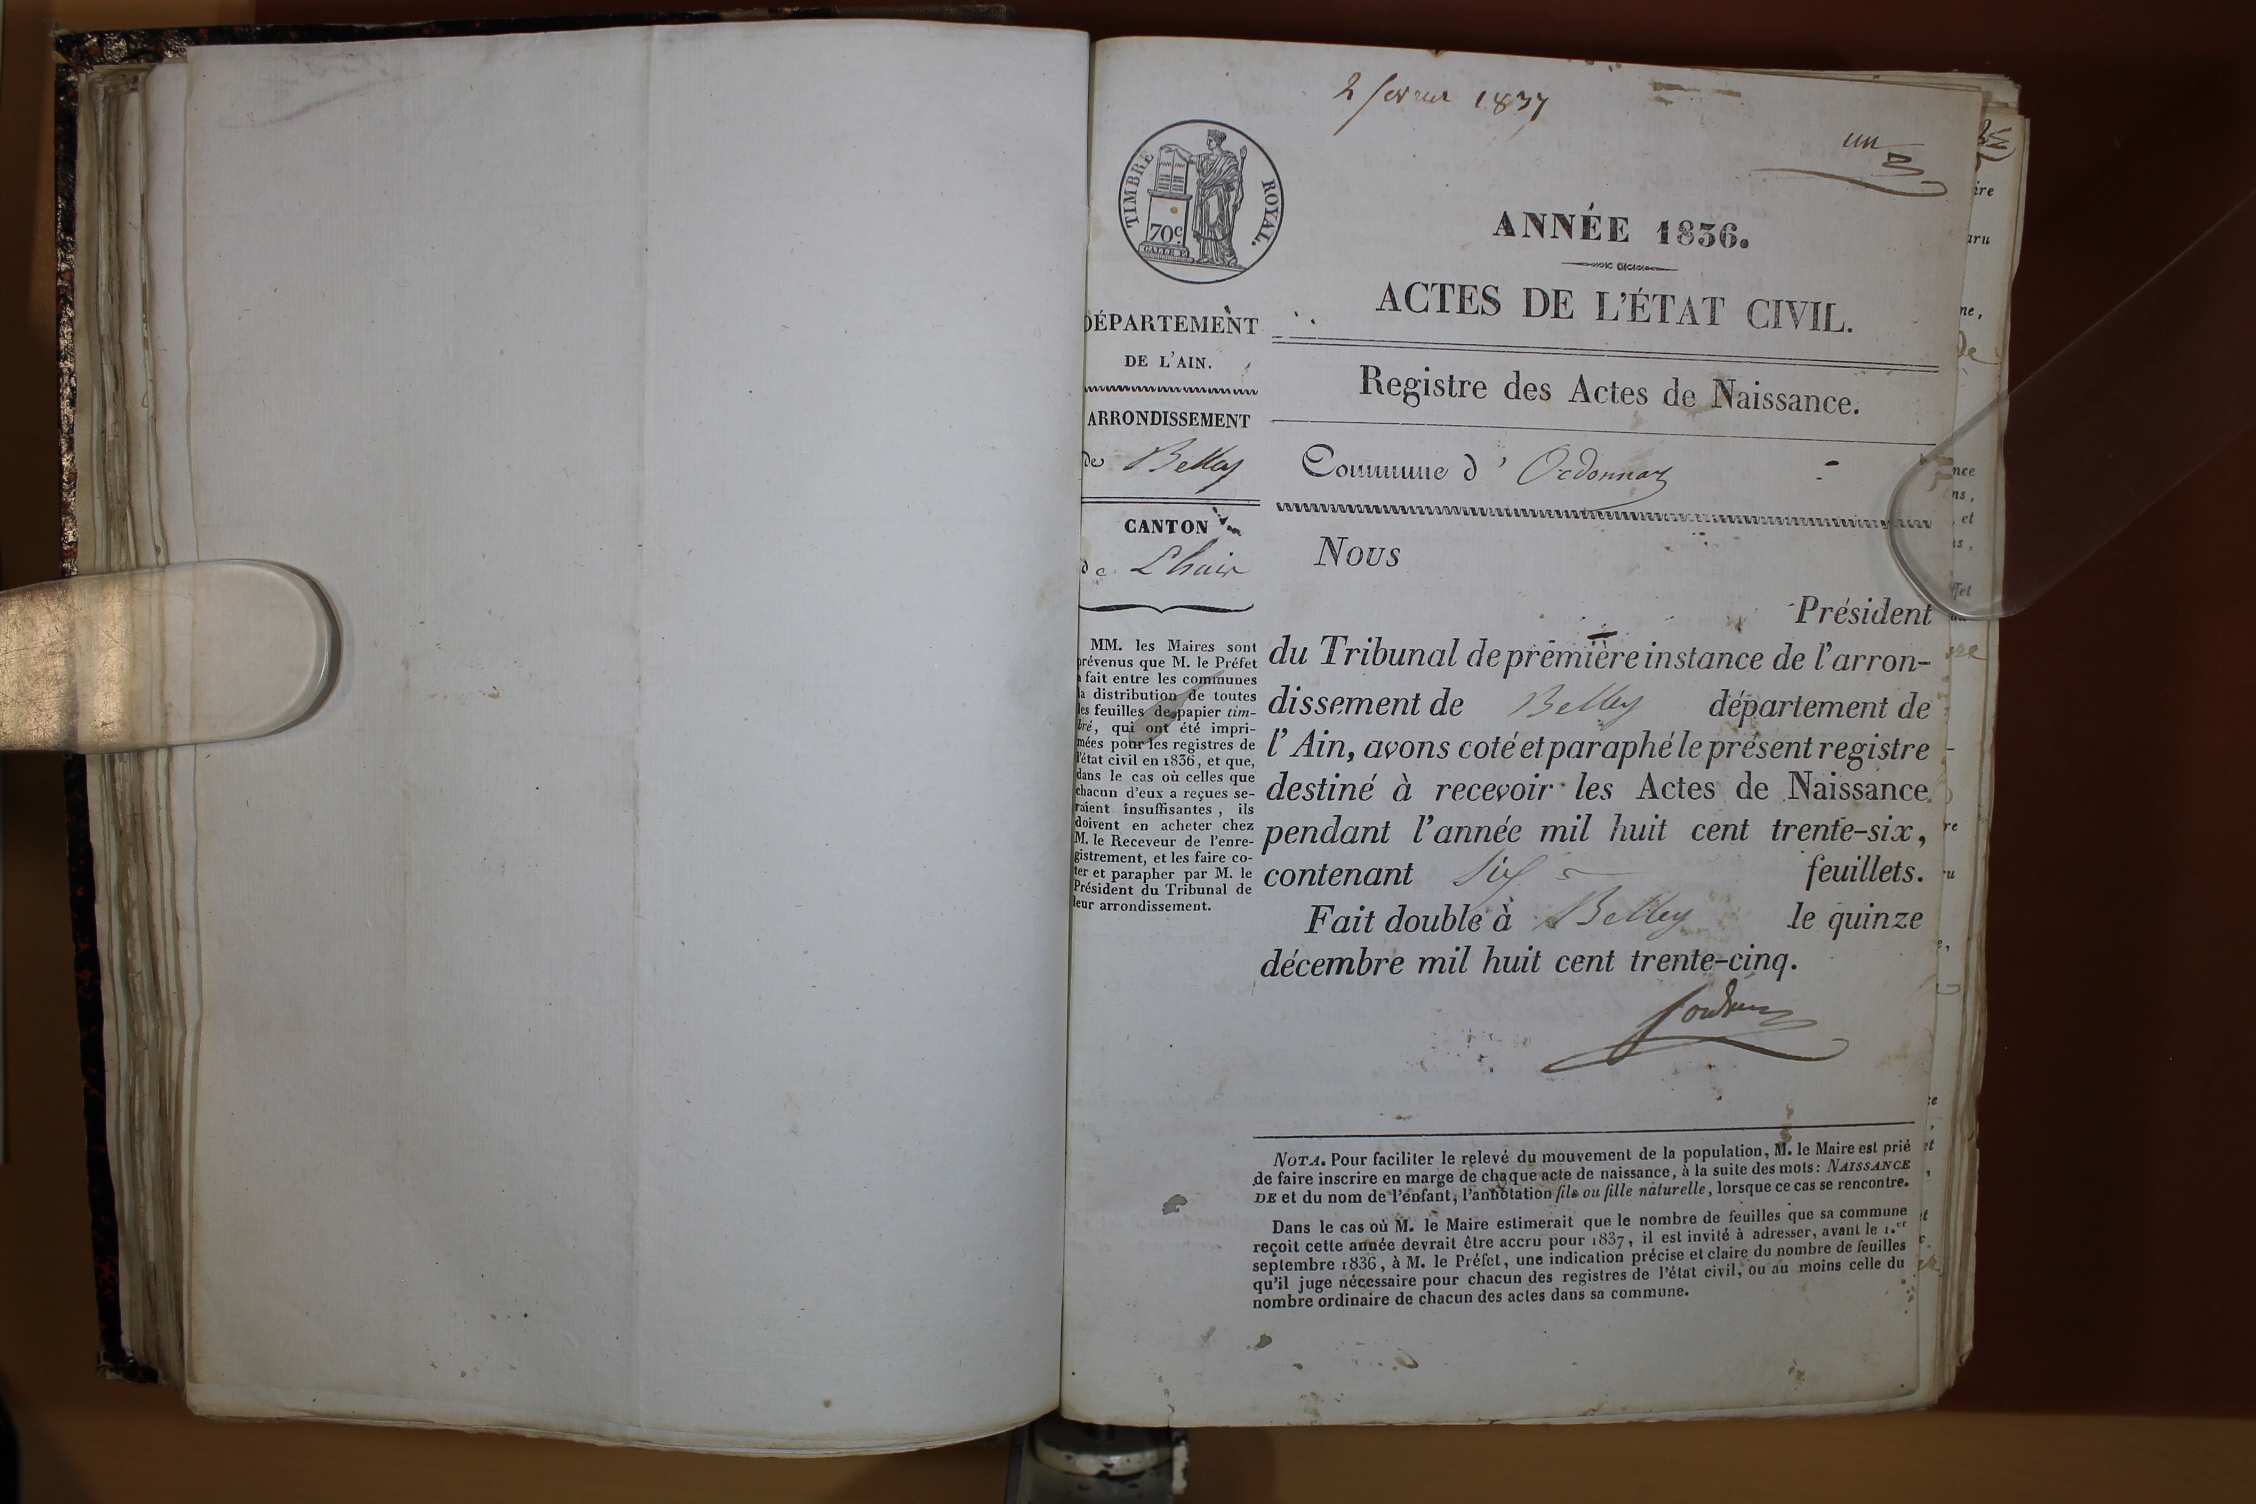 2 fevrier 1837
un
TIMBRE ROYAL.
70c.
GALLE F.
ANNÉE 1836.
ACTES DE L'ÉTAT CIVIL.
DÉPARTEMENT
DE L'AIN.
ARRONDISSEMENT
de Belley
CANTON
de Lhuis
MM. les Maires sont
prévenus que M. le Préfet
a fait entre les communes
la distribution de toutes
les feuilles de papier tim-
bré, qui ont été impri-
mées pour les registres de
l'état civil en 1836, et que,
dans le cas où celles que
chacun d'eux a reçues se-
raient insuffisantes, ils
doivent en acheter chez
M. le Receveur de l'enre-
gistrement, et les faire co-
ter et parapher par M. le
Président du Tribunal de
leur arrondissement.
Registre des Actes de Naissance.
Commune d' Ordonnaz
Nous
Président
du Tribunal de première instance de l'arron-
dissement de Belley département de
l'Ain, avons coté et paraphé le présent registre
destiné à recevoir les Actes de Naissance
pendant l'année mil huit cent trente-six,
contenant six feuillets.
Fait double à Belley le quinze
décembre mil huit cent trente-cinq.
NOTA. Pour faciliter le relevé du mouvement de la population, M. le Maire est prié
de faire inscrire en marge de chaque acte de naissance, à la suite des mots: NAISSANCE
DE et du nom de l'enfant, l'annotation fils ou fille naturelle, lorsque ce cas se rencontre.
Dans le cas où M. le Maire estimerait que le nombre de feuilles que sa commune
reçoit cette année devrait être accru pour 1837, il est invité à adresser, avant le 1.er
septembre 1836, à M. le Préfet, une indication précise et claire du nombre de feuilles
qu'il juge nécessaire pour chacun des registres de l'état civil, ou au moins celle du
nombre ordinaire de chacun des actes dans sa commune.